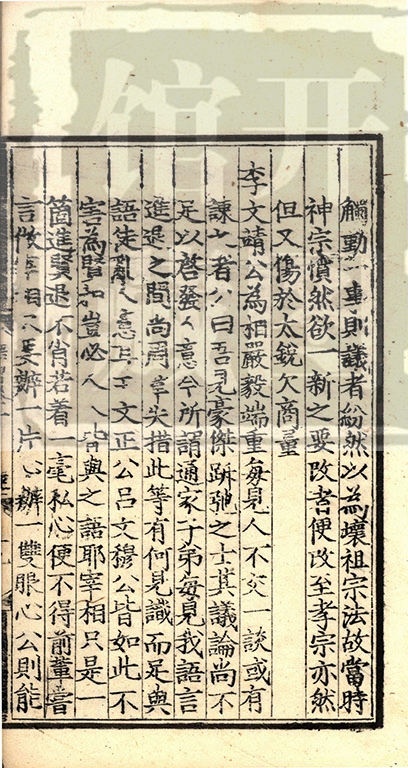 觸動一事則議者紛然以為壞祖宗法故當時
神宗憤然欲一新之要改者便改至孝宗亦然
但又傷於太銳欠商量
李文靖公為相嚴毅端重每見人不交一談或有
諫之者公曰吾見豪傑跅弛之士其議論尚不
足以啓發人意今所謂通家子弟每見我語言
進退之間尚周章失措此等有何見識而足與
語徒亂人意王文正公呂文穆公皆如此不
害為賢相豈必人人皆與之語耶宰相只是一
箇進賢退不肖若着一毫私心便不得前輩嘗
言做宰相只要辦一片心辦一雙眼心公則能